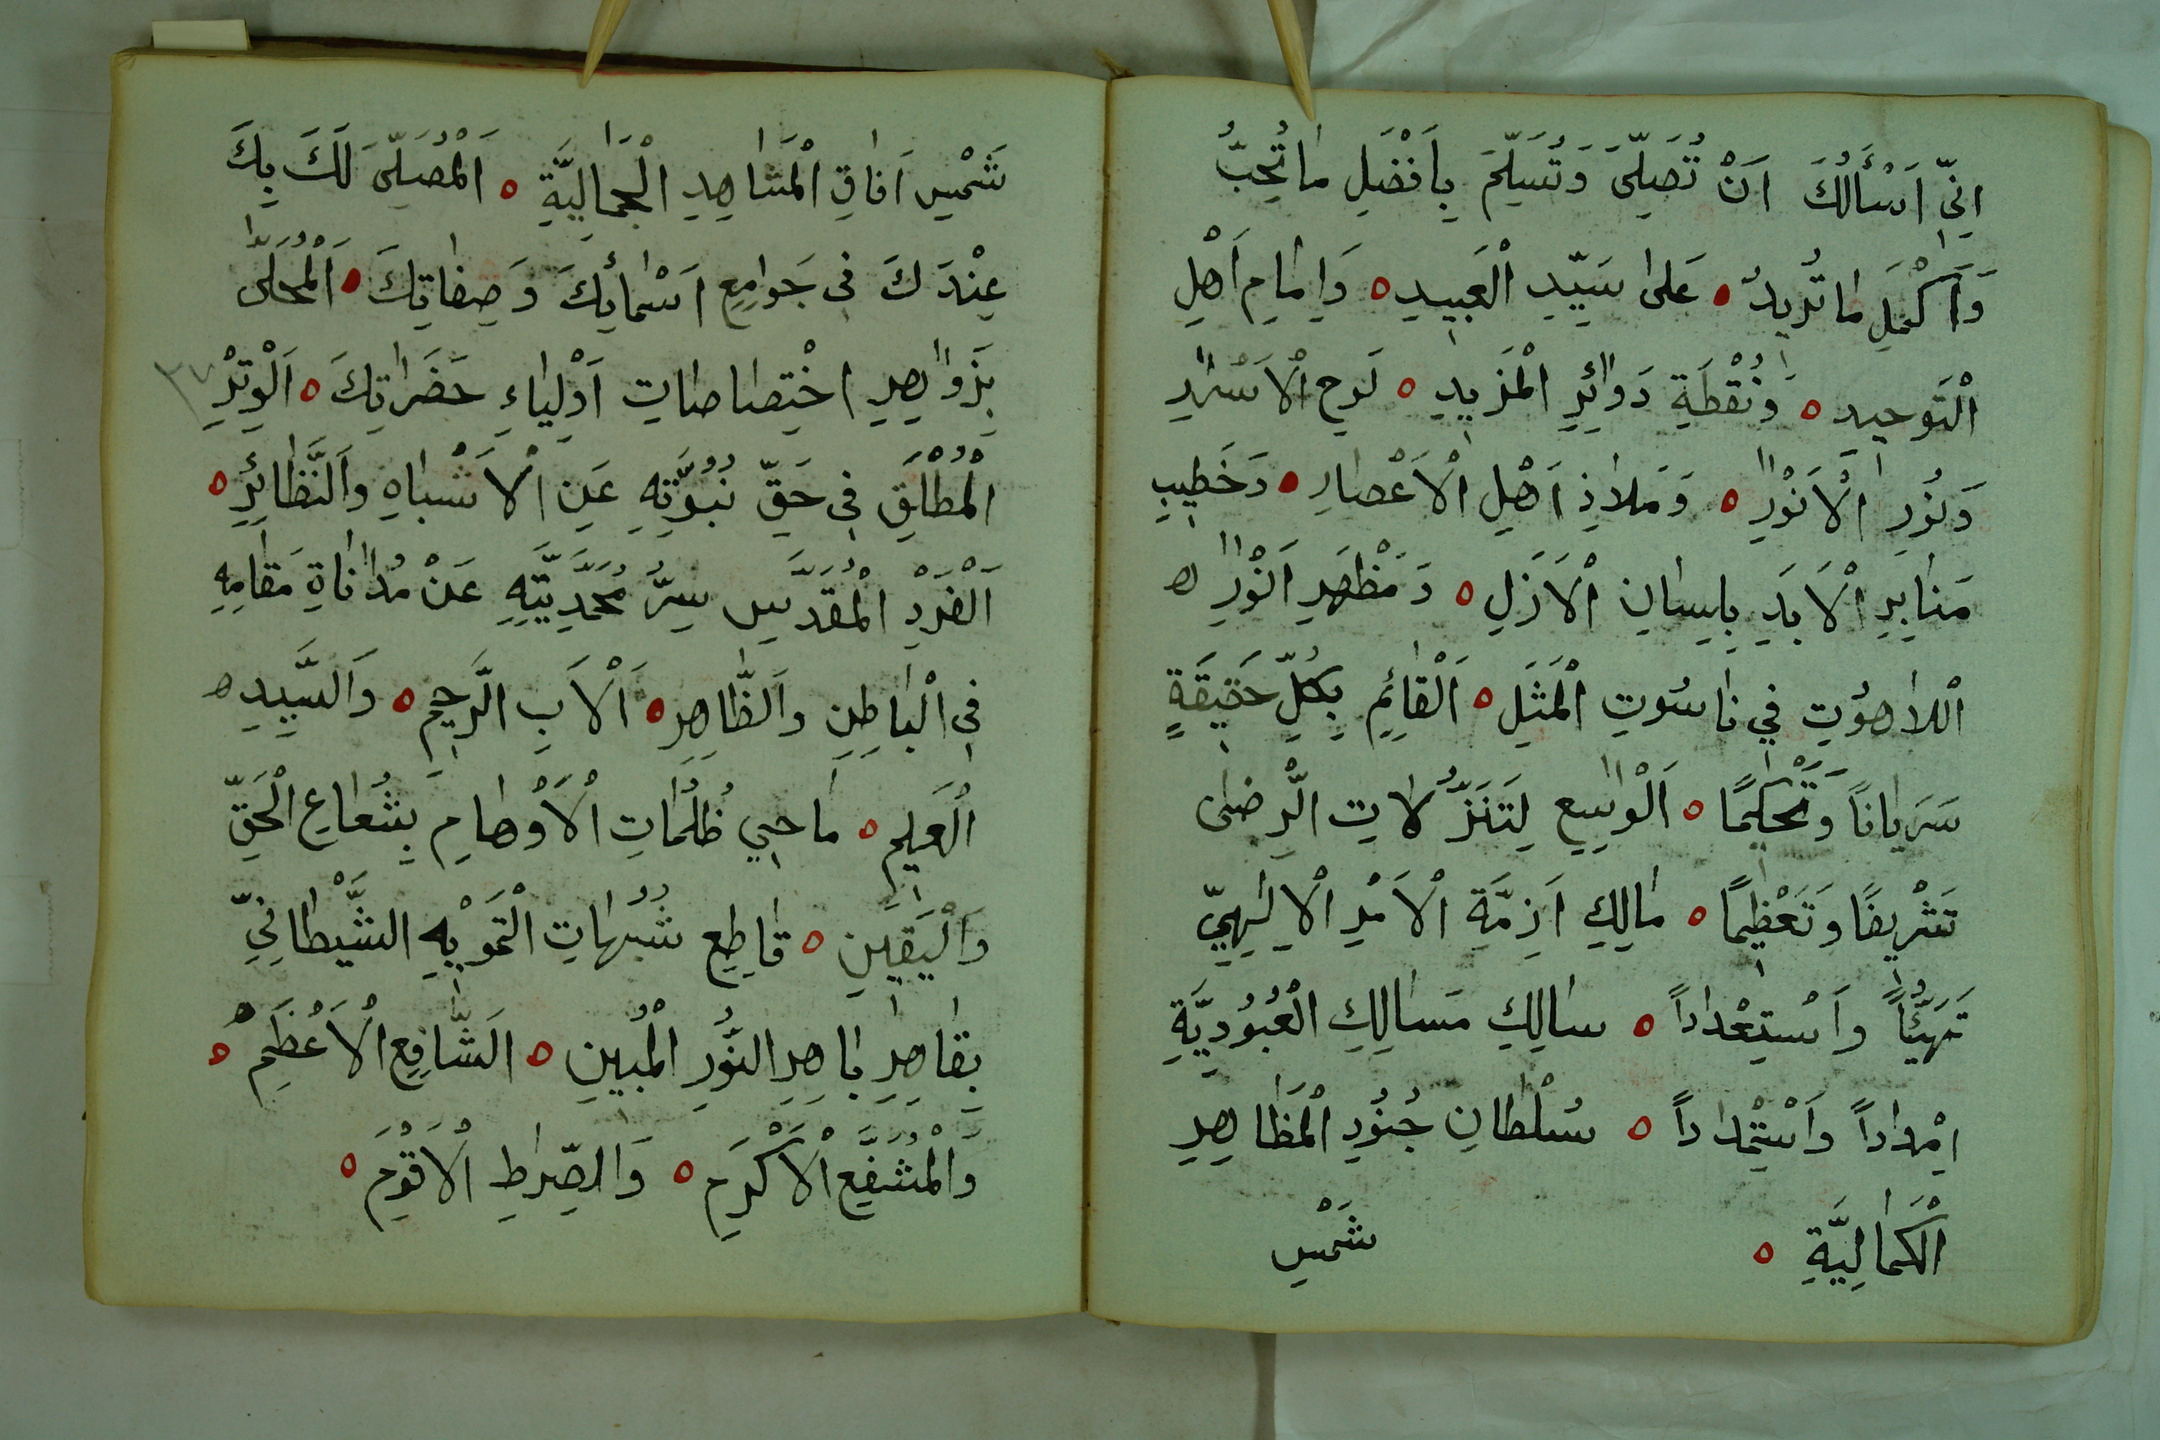 اِنّى اَسْأَلُكَ اَنْ تُصَلِّىَ وَتُسَلِّمَ بِاَفْضَلِ مٰا تُحِبُّ
وَاَكْمَلِ مٰا تُرِيدُ ه عَلىٰ سَيِّدِ الْعَبِيدِ ه وَاِمٰامِ اَهْلِ
الْتَوحِيدِ ه وَنُقْطَةِ دَوٰائِرِ الْمَزِيدِ ه لَوحِ الْاَسْرٰارِ
وَنُورِ الْاَنْوٰارِ ه وَمَلاٰذِ اَهْلِ الْاَعْصٰارِ ه وَخَطِيبِ
مَنٰابِرِ الْاَبَدِ بِلِسٰانِ الْاَزَلِ ه وَمَظْهَرِ اَنْوٰارِ ه
اْللاٰهُوتِ فِي نٰاسُوتِ الْمَثَلِ ه اَلْقٰائِمِ بِكُلِّ حَقِيقَةٍ
سَرَيٰاناً وَتَحْكِيمًا ه اَلْوٰاسِعِ لِتَنَزُّلاٰتِ الْرِضىٰ
تَشْرِيفًا وَتَعْظِيمًا ه مٰالِكِ اَزِمَّةِ الْاَمْرِ الْاِلٰهِيِّ
تَهَيُّأً وَاَسْتِعْدٰاداً ه سٰالِكِ مَسٰالِكِ الْعُبُودِيَّةِ
اِمْدٰاداً وَاَسْتِمْدٰاداً ه سُلْطٰانِ جُنُودِ الْمَظٰاهِرِ
الْكَمٰالِيَّةِ ه شَمْسِ
شَمْسِ اَفٰاقِ الْمَشٰاهِدِ الْجَمٰالِيَّةِ ه اَلْمُصَلِّىَ لَكَ بِكَ
عِنْدَكَ فِى جَوٰامِعِ اَسْمٰائِكَ وَصِفٰاتِكَ ه اَلْمُحَلّىٰ
بِزَوٰاهِرِ اخْتِصٰاصٰاتِ اَوْلِيٰاءِ حَضَرٰاتِكَ ه اَلْوِتْرِ
الْمُطْلَقِ فِى حَقِّ نُبُوَّتِهِ عَنِ الْاَشْبٰاهِ وَاَلنَّظٰائِرِ ه
اَلْفَرْدِ الْمُقَدَّسِ سِرُّ مُحَمَّدِيَّتِهِ عَنْ مُدٰانٰاةِ مَقٰامِهِ
فِى الْبٰاطِنِ وَاَلظّٰاهِرِ ه اَلْاَبِ الرَّحِيمِ ه وَاَلسَّيِّدِ ه
اَلْعَلِيمِ ه مٰاحِي ظُلُمٰاتِ الْاَوْهٰامِ بِشُعٰاعِ الْحَقِّ
وَاَلْيَقِينِ ه قٰاطِعِ شُبُهٰاتِ الْتَمْوِيْهِ الشَّيْطٰانِيِّ
بِقٰاهِرِ بٰاهِرِ النُّورِ الْمُبِينِ ه اَلشّٰافِعِ الْاَعْظَمِ ه
وَالْمُشَفَّعِ الْاَكْرَمِ ه وَالصِّرٰاطِ الْاَقْوَمِ ه